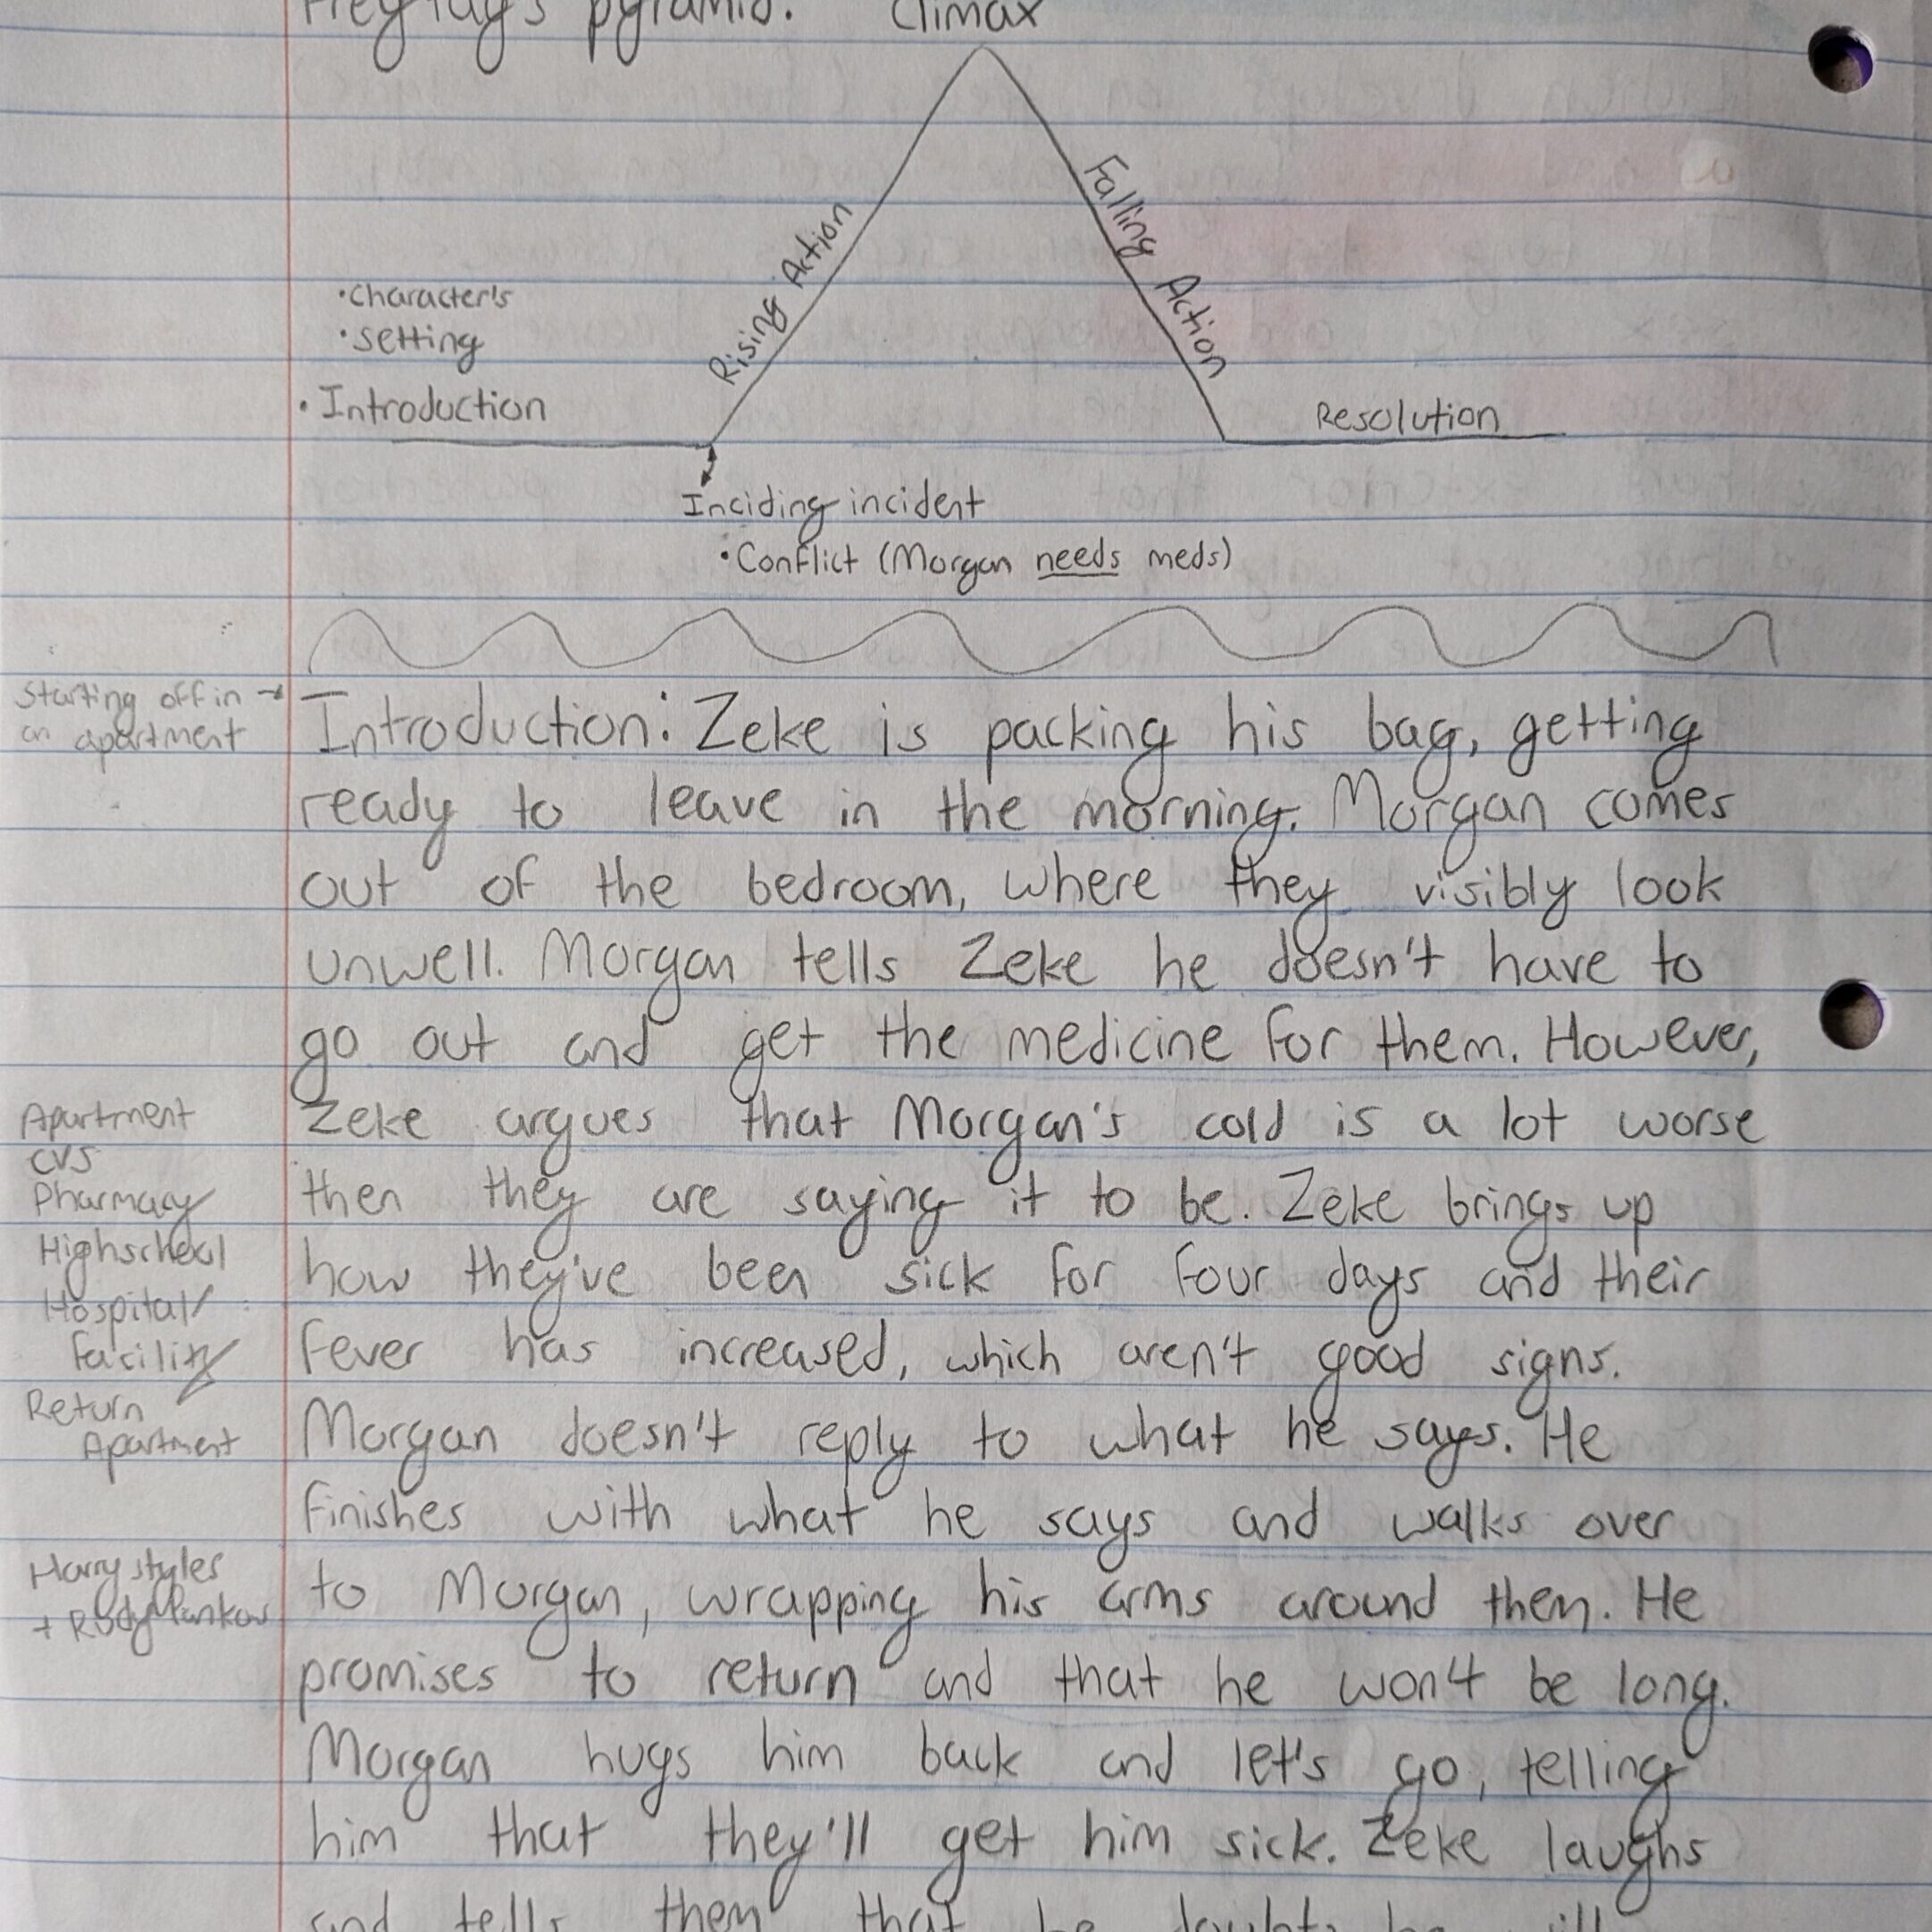 Freytag's pyramid: Climax
Rising Action
Falling Action
•Character's
•setting
•Introduction
Resolution
Inciding incident
•Conflict (Morgan needs meds)
Starting off in →
an apartment
Introduction: Zeke is packing his bag, getting
ready to leave in the morning. Morgan comes
out of the bedroom, where they visibly look
unwell. Morgan tells Zeke he doesn't have to
go out and get the medicine for them. However,
Zeke argues that Morgan's cold is a lot worse
then they are saying it to be. Zeke brings up
how they've been sick for four days and their
fever has increased, which aren't good signs.
Morgan doesn't reply to what he says. He
finishes with what he says and walks over
to Morgan, wrapping his arms around them. He
promises to return and that he won't be long.
Morgan hugs him back and let's go, telling
him that they'll get him sick. Zeke laughs
and tells them that he doubts he
Apartment
CVS
Pharmacy
Highschool
Hospital/
facility
Return
Apartment
Harry styles
+ Rudy Pankow